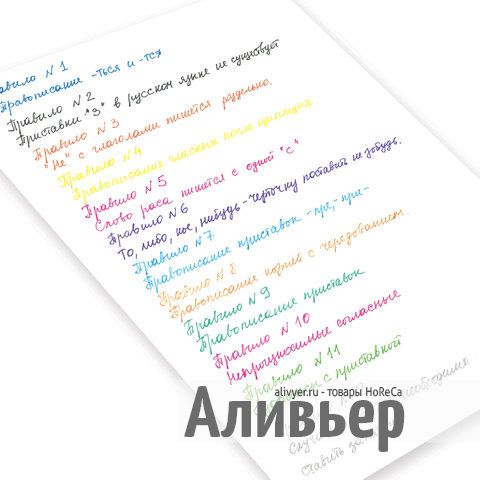 Правило N 1
Правописание -ться и -тся
Правило N 2
Приставки "З" в русском языке не существует
Правило N 3
"Не" с глаголами пишется раздельно.
Правило N 4
Правописание гласных после шипящих.
Правило N 5
Слово раса пишется с одной "с"
Правило N 6
То, либо, кое, нибудь - черточку поставить не забудь.
Правило N 7
Правописание приставок -пре, - при-
Правило N 8
Правописание корней с чередованием.
Правило N 9
Правописание приставок
Правило N 10
Непроизносимые согласные
Правило N 11
с приставкой
alivyer.ru - товары HoReCa
Аливьер
ставить необходимо